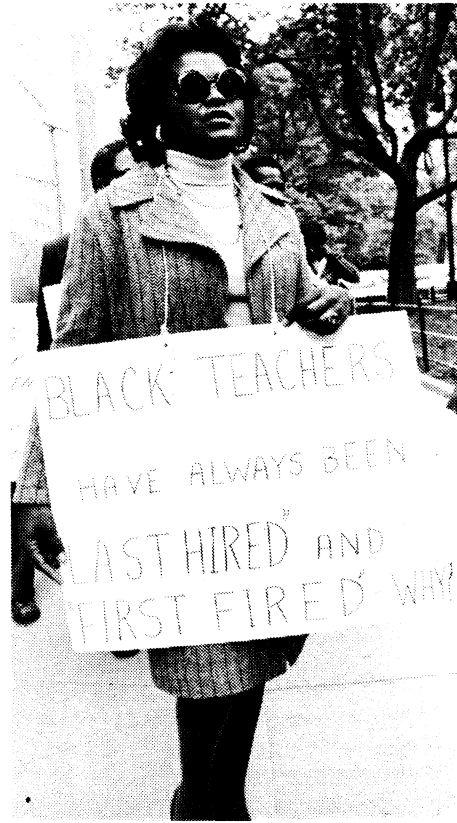 "BLACK TEACHERS
HAVE ALWAYS BEEN
"LAST HIRED" AND
"FIRST FIRED" WHY?